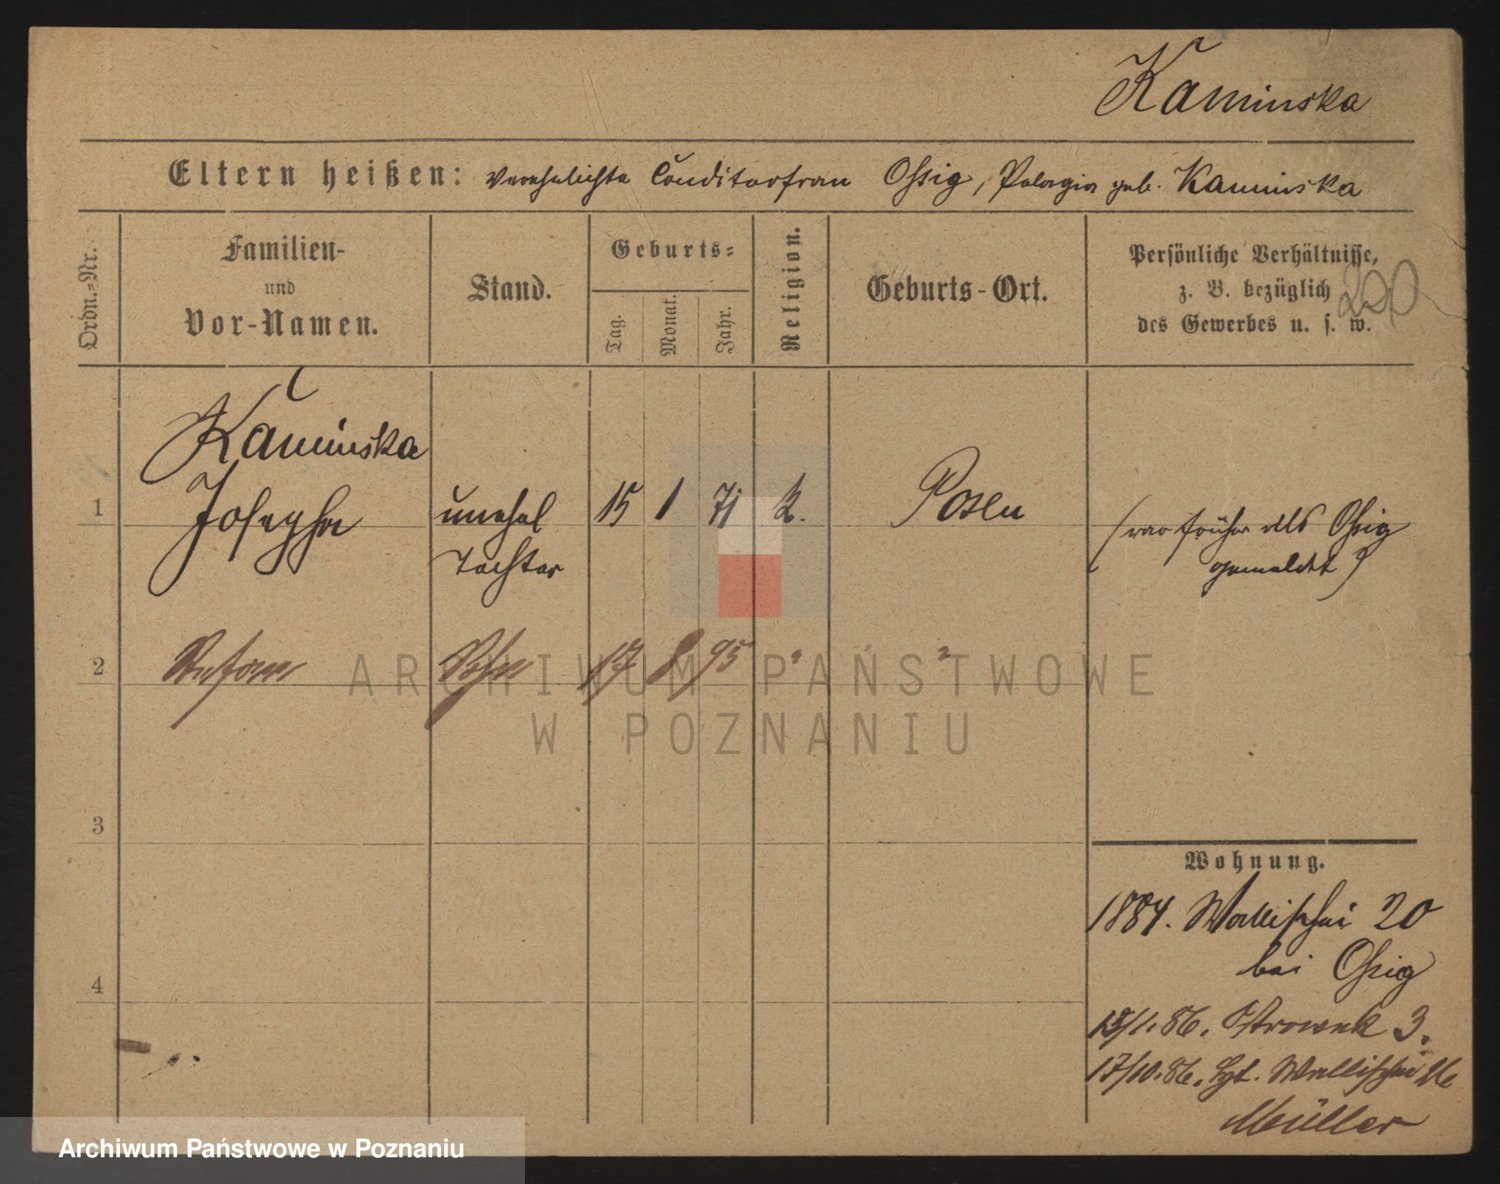 Kaminska
Eltern heißen: verehelichte Conditorfrau Ossig, Pelagia geb. Kaminska
Ordn.-Nr.
Familien-
und
Vor-Namen.
Stand.
Geburts-
Tag.
Monat.
Jahr.
Religion.
Geburts-Ort.
Persönliche Verhältnisse,
z. B. bezüglich
des Gewerbes u. s. w.
200
Kaminska
1 Josepha unehel 15 1 71 k. Posen (war früher als Ossig
Tochter gemeldet)
2 Stefan Sohn 17 8 95 " "
3
4
Wohnung.
1884. Wallischei 20
bei Ossig
13/1.86. Ostrowek 3.
17/10.86. Wallischei
Müller
ARCHIWUM PAŃSTWOWE
W POZNANIU
Archiwum Państwowe w Poznaniu